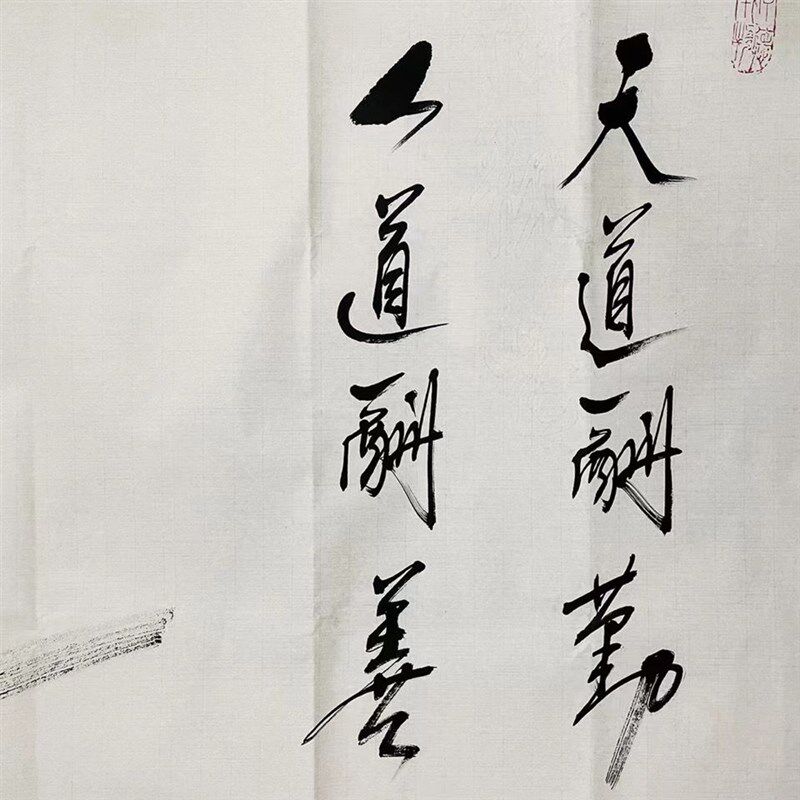 天道酬勤
人道酬善